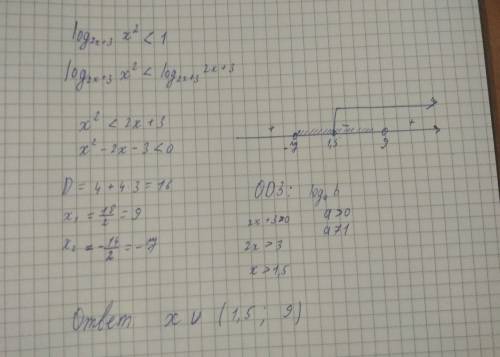 log₂ₓ₊₃ x² < 1
log₂ₓ₊₃ x² < log₂ₓ₊₃ 2x+3
x² < 2x+3
x² - 2x - 3 < 0
D = 4 + 4·3 = 16
x₁ = 18/2 = 9
x₂ = -14/2 = -7
+ - +
-7 1,5 9
ОДЗ: logₐ b
a>0
a≠1
2x+3>0
2x > 3
x > 1,5
Ответ x ∪ (1,5 ; 9)